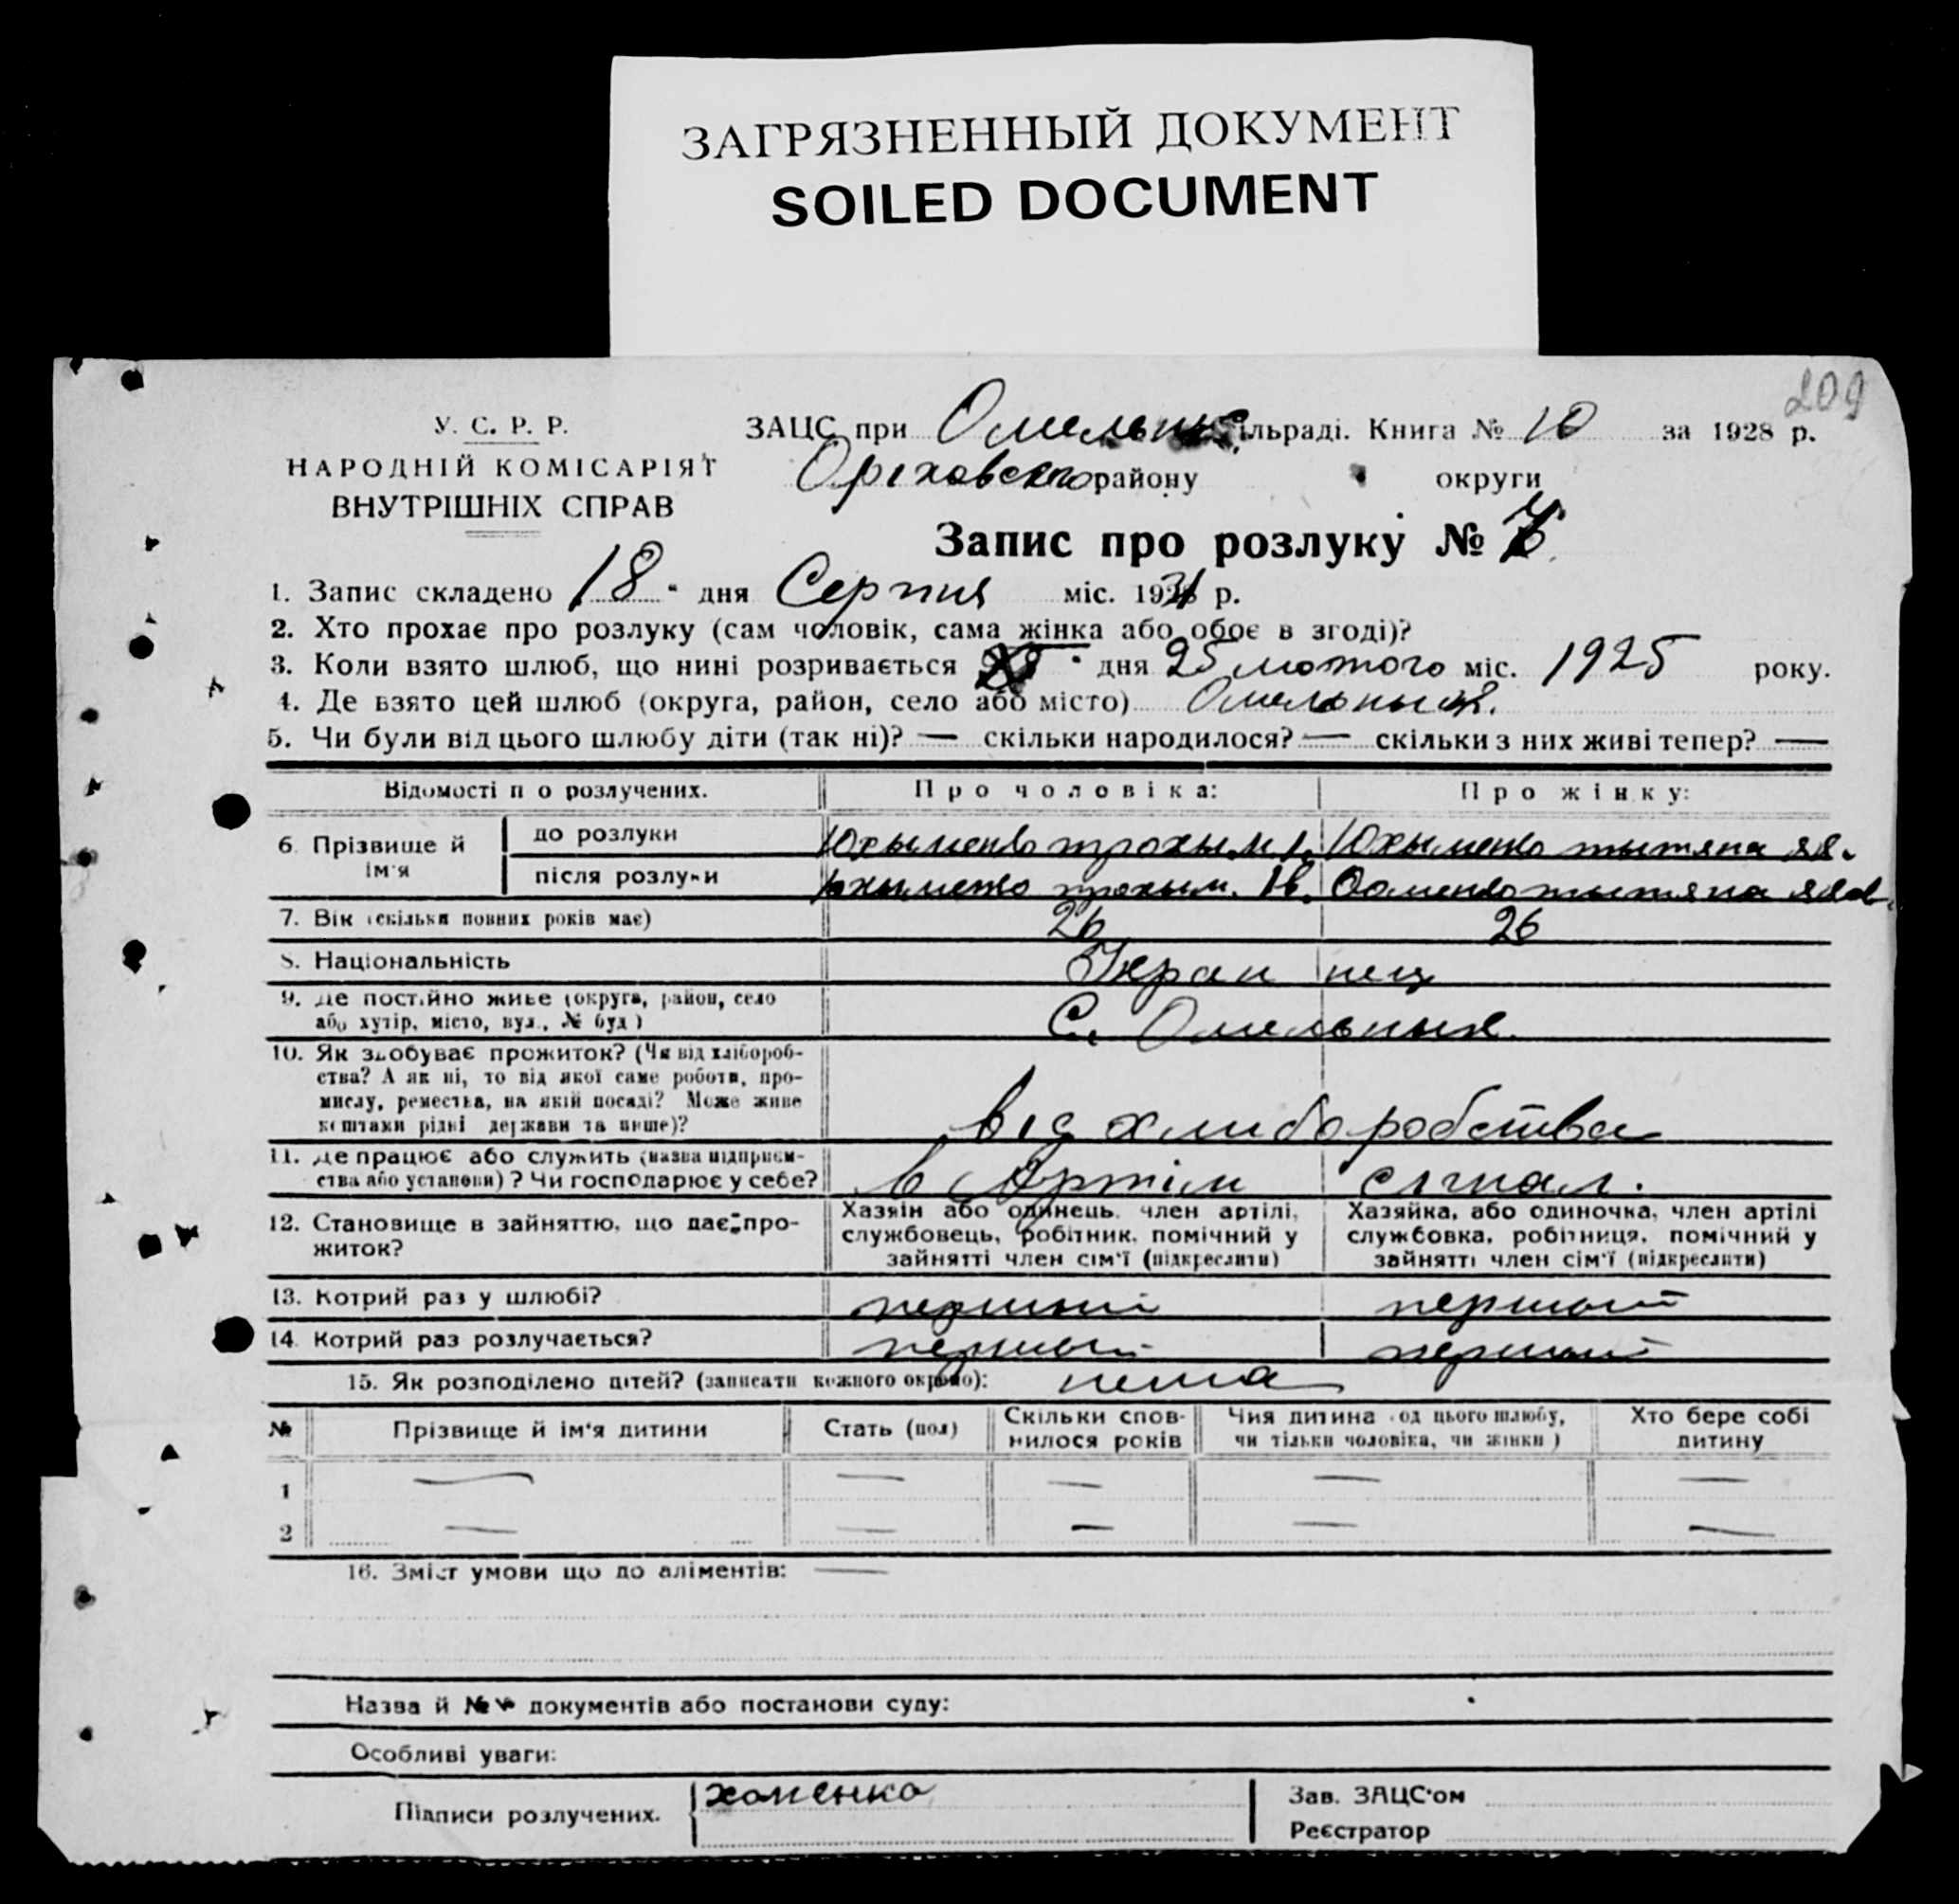 ЗАГРЯЗНЕННЫЙ ДОКУМЕНТ
SOILED DOCUMENT
209
У. С. Р. Р.
НАРОДНІЙ КОМІСАРІЯТ
ВНУТРІШНІХ СПРАВ
ЗАЦС при Омельник сільраді. Книга № 10 за 1928 р.
Оріховского району округи
Запис про розлуку №
1. Запис складено 18 дня Серпня міс. 1931 р.
2. Хто прохає про розлуку (сам чоловік, сама жінка або обоє в згоді)?
3. Коли взято шлюб, що нині розривається дня 25 лютого міс. 1925 року.
4. Де взято цей шлюб (округа, район, село або місто) Омельник.
5. Чи були від цього шлюбу діти (так ні)? — скільки народилося? — скільки з них живі тепер? —
Відомості п о розлучених. Про чоловіка: Про жінку:
6. Прізвище й ім'я до розлуки Юхыменко трохым І. Юхыменко тытяна
після розлуки Юхыменко трохым. Ів. тытяна
7. Вік (скільки повних років має) 26 26
8. Національність Украи нец
9. Де постійно живе (округа, район, село
або хутір, місто, вул., № буд.) С. Омельнык.
10. Як здобуває прожиток? (Чи від хлібороб-
ства? А як ні, то від якої саме роботи, про-
мислу, ремества, на якій посаді? Може живе
коштами рідні держави та инше)? від хлиборобства
11. Де працює або служить (назва підприєм-
ства або установи)? Чи господарює у себе? в Артіли сігнал.
12. Становище в зайняттю, що дає про-
житок?
Хазяїн або одинець, член артілі,
службовець, робітник, помічний у
зайнятті член сім'ї (підкреслити)
Хазяйка, або одиночка, член артілі
службовка, робітниця, помічний у
зайнятті член сім'ї (підкреслити)
13. Котрий раз у шлюбі? першый першый
14. Котрий раз розлучається? першый першый
15. Як розподілено дітей? (записати кожного окремо): нема
№ Прізвище й ім'я дитини Стать (пол) Скільки спов-
нилося років Чия дитина (од цього шлюбу,
чи тільки чоловіка, чи жінки) Хто бере собі
дитину
1 — — — — —
2 — — — — —
16. Зміст умови що до аліментів: —
Назва й №№ документів або постанови суду:
Особливі уваги:
Підписи розлучених. хоменко
Зав. ЗАЦС'ом
Реєстратор